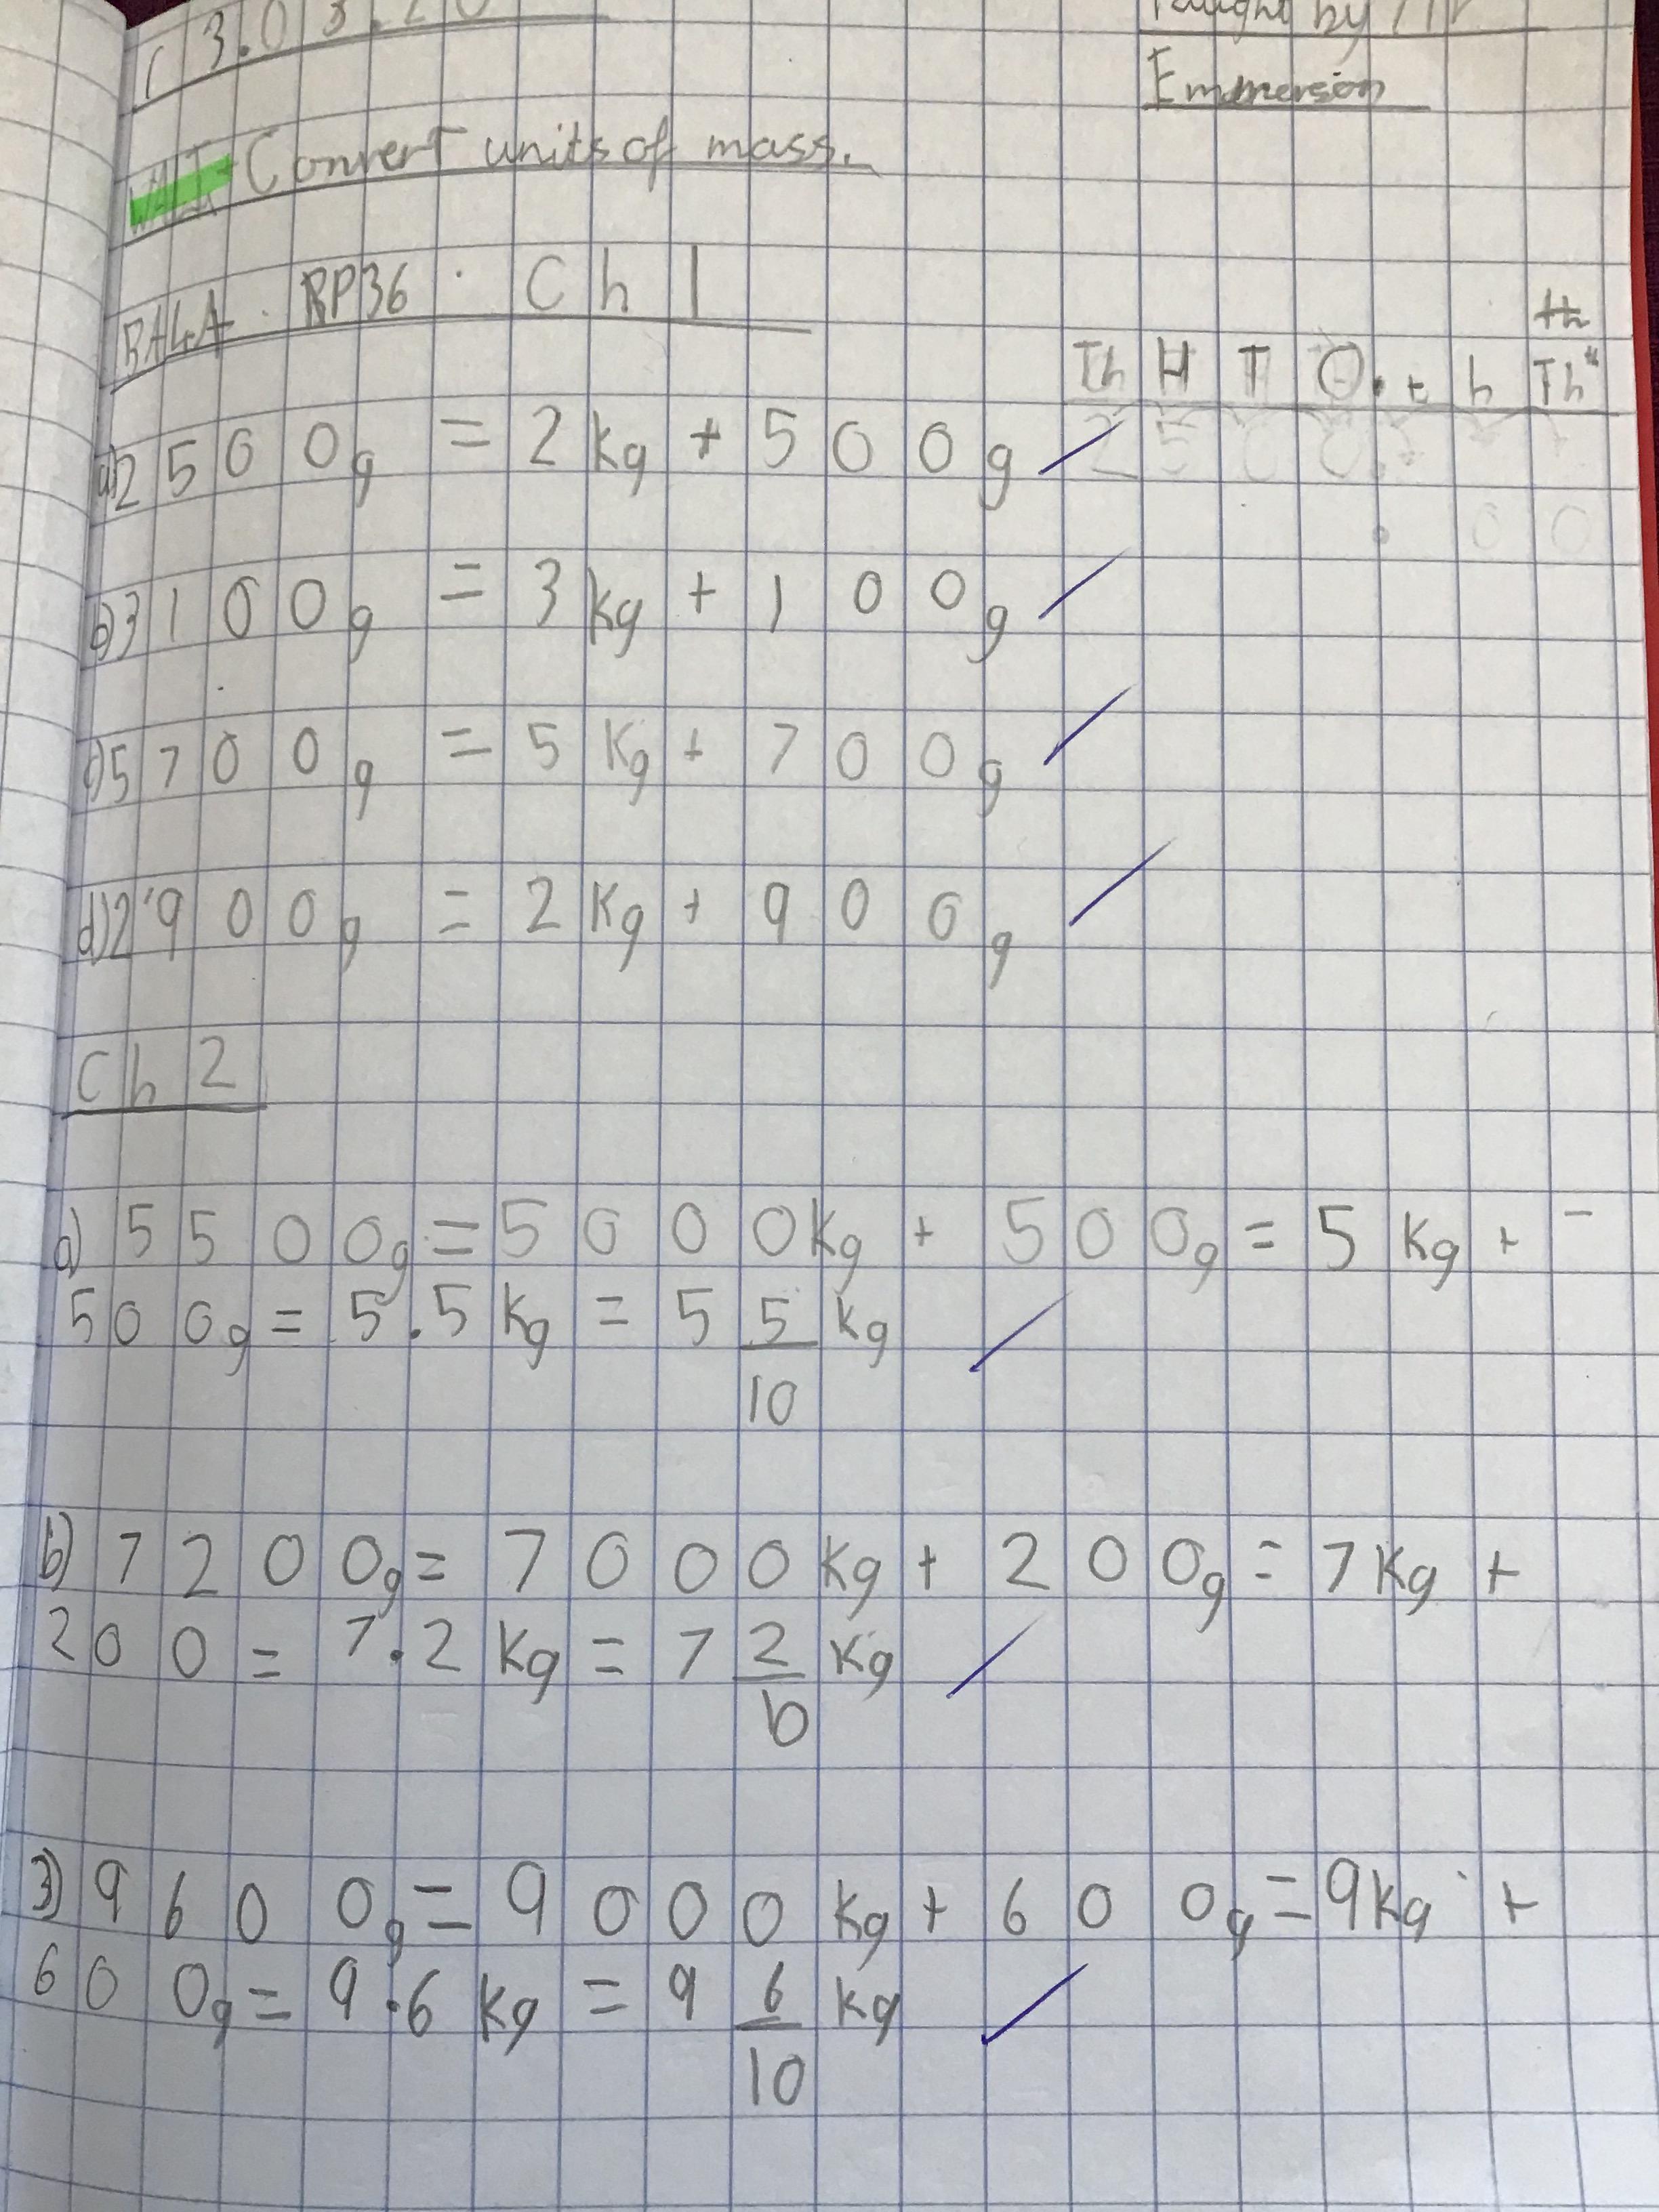 13.03.20
Taught by Mr
Emmerson
WALT Convert units of mass.
RP36 . Ch 1
th
Th H T O . t h Th
a) 2500g = 2kg + 500g
2500.
. 0 0
b) 3100g = 3kg + 100g
c) 5700g = 5Kg + 700g
d) 2900g = 2Kg + 900g
Ch 2
a) 5500g = 5000kg + 500g = 5Kg +
500g = 5.5Kg = 5 5/10 kg
b) 7200g = 7000Kg + 200g = 7Kg +
200 = 7.2Kg = 7 2/10 Kg
3) 9600g = 9000Kg + 600g = 9Kg +
600g = 9.6kg = 9 6/10 kg